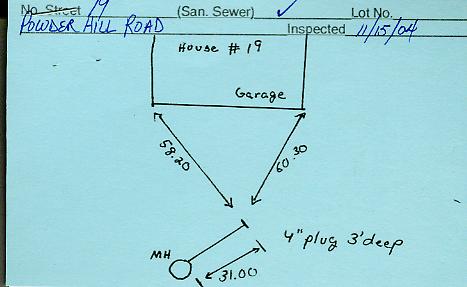 No. Street 19 (San. Sewer) ✓ Lot No.
POWDER HILL ROAD Inspected 11/15/04
House # 19
Garage
58.20
60.30
4" plug 3' deep
MH
31.00